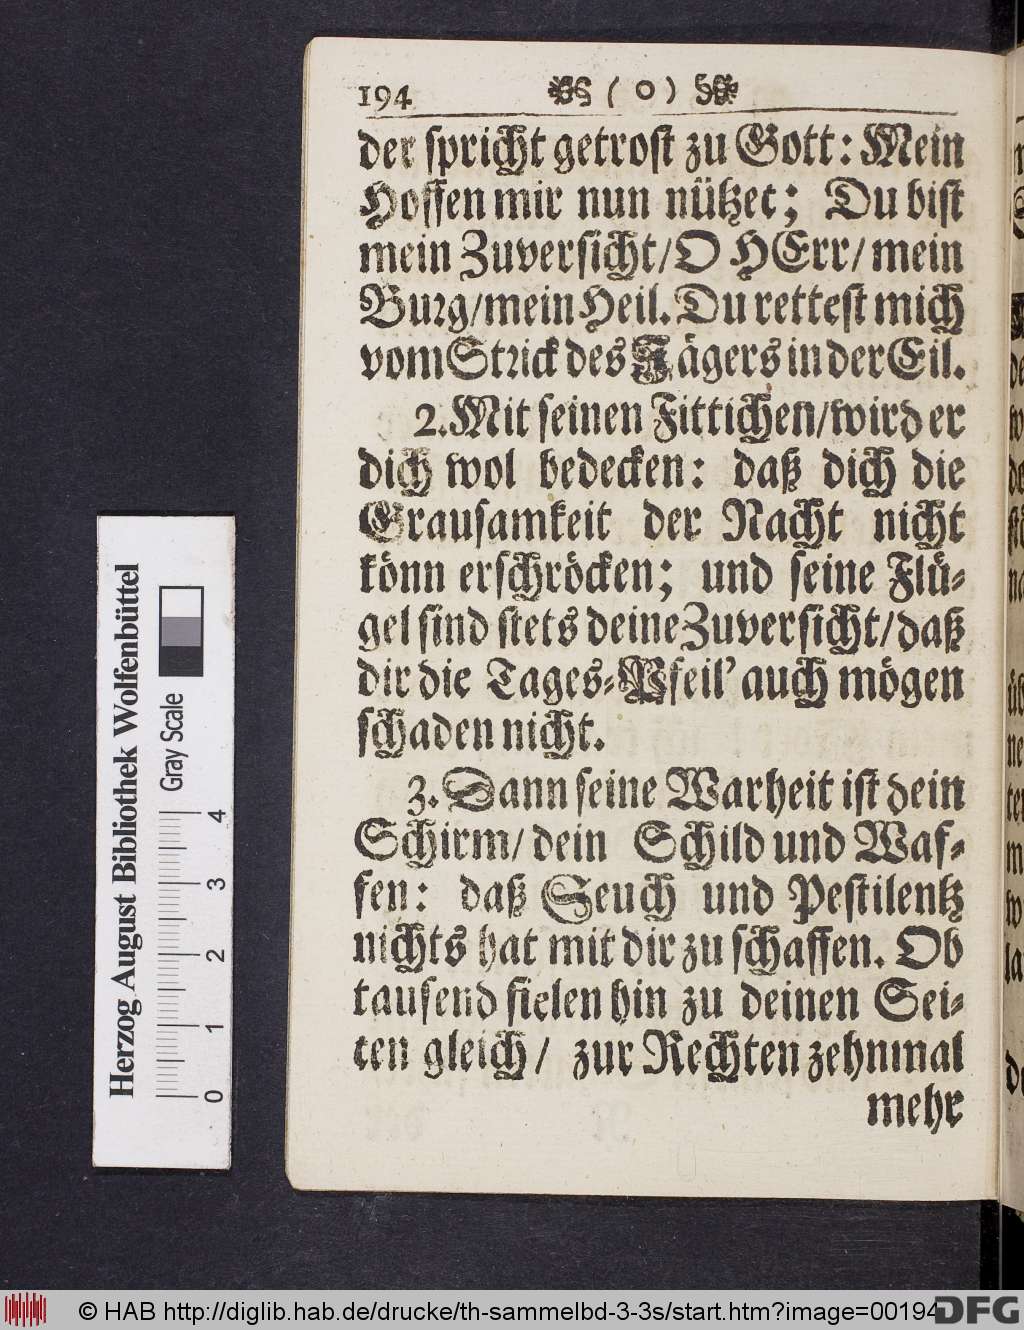 194 ( o )
der spricht getrost zu Gott: Mein
Hoffen mir nun nützet; Du bist
mein Zuversicht/O HErr/mein
Burg/mein Heil. Du rettest mich
vom Strick des Jägers in der Eil.
2. Mit seinen Fittichen/wird er
dich wol bedecken: daß dich die
Grausamkeit der Nacht nicht
könn erschröcken; und seine Flü-
gel sind stets deine Zuversicht/daß
dir die Tages-Pfeil' auch mögen
schaden nicht.
3. Dann seine Warheit ist dein
Schirm/dein Schild und Waf-
fen: daß Seuch und Pestilentz
nichts hat mit dir zu schaffen. Ob
tausend fielen hin zu deinen Sei-
ten gleich/ zur Rechten zehnmal
mehr
Herzog August Bibliothek Wolfenbüttel
Gray Scale
0 1 2 3 4
© HAB http://diglib.hab.de/drucke/th-sammelbd-3-3s/start.htm?image=00194
DFG